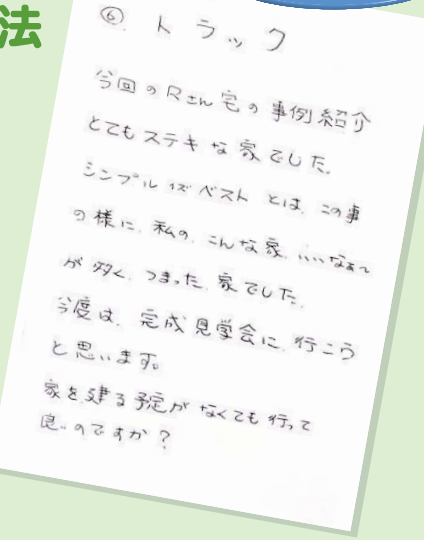 法
⑥. トラック
今回のRさん宅の事例紹介
とてもステキな家でした。
シンプルイズベストとは、この事
の様に、私の、こんな家、いいなぁ〜
が多く、つまった、家でした。
今度は、完成見学会に、行こう
と思います。
家を建る予定がなくても行って
良いのですか?